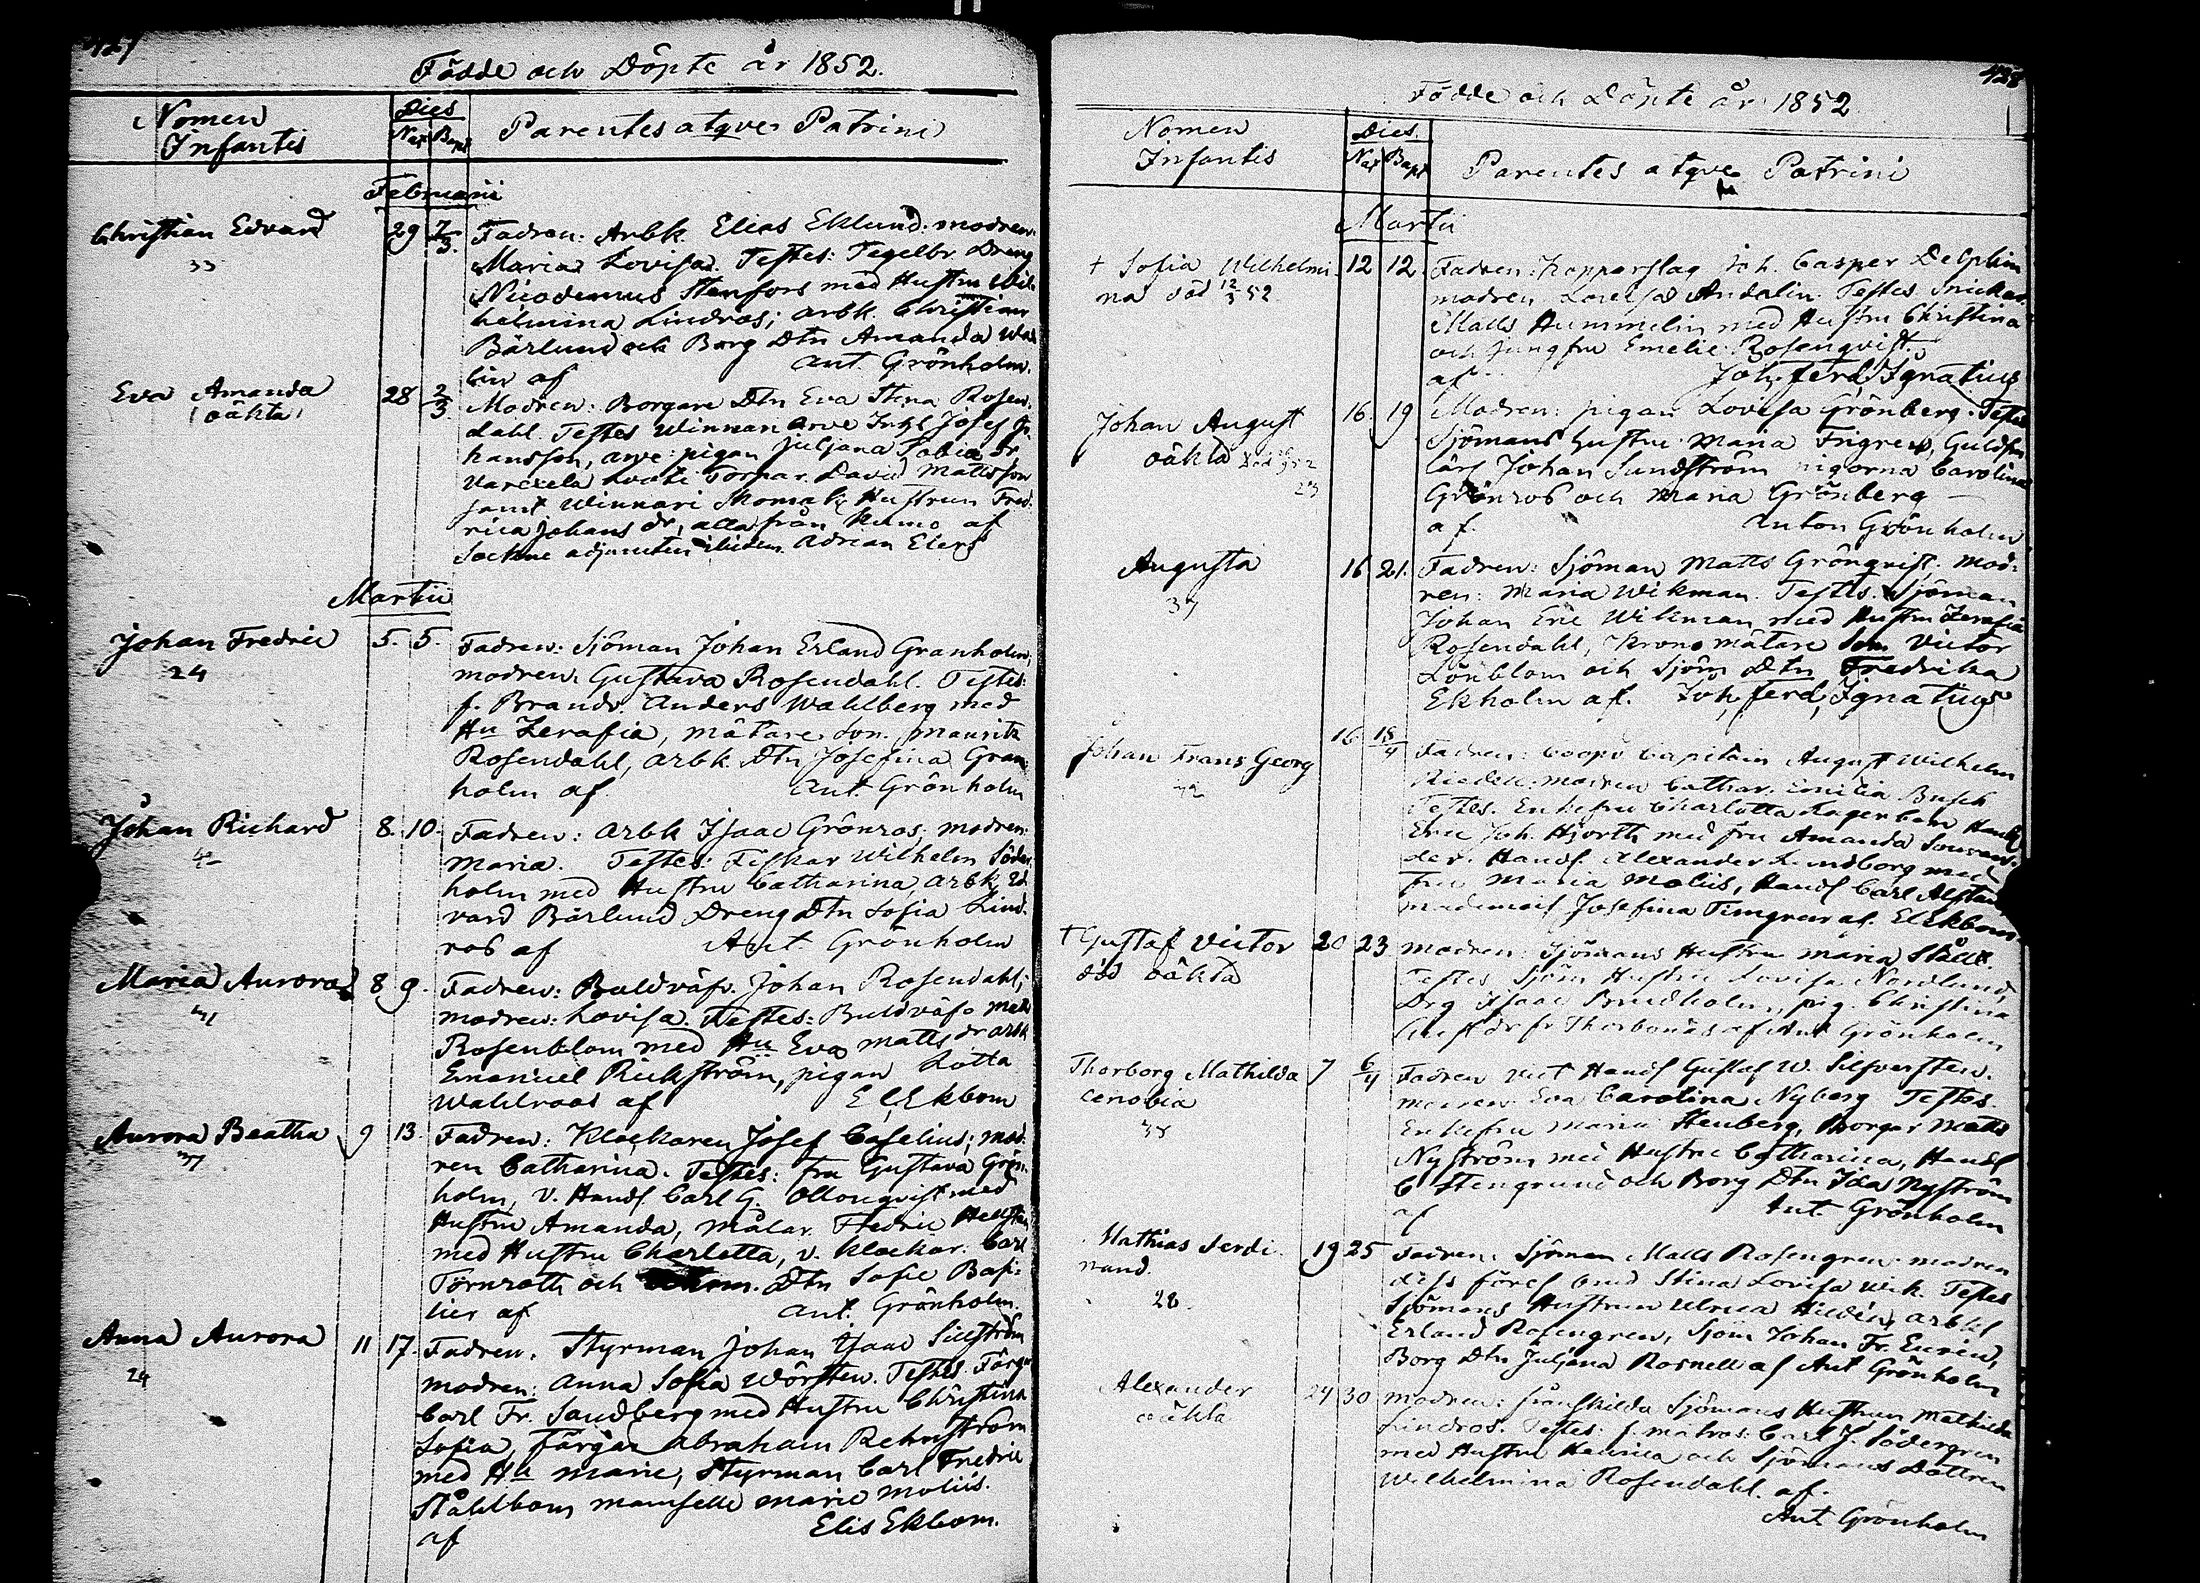 427
Födde och Döpte år 1852.
Nomen Infantis
Dies
Nat Bapt
Parentes atqve Patrini
Februarii
Christian Edvard
33
29 7/3.
Fadren: Arbk. Elias Eklund. modren:
Maria Lovisa. Testes: Tegelbr. Dreng
Nicodemus Stenfors med Hustru Wil-
helmina Lindros; arbk. Christian
Bärlund och Borg Dtn Amanda Wah
lin af Ant. Grönholm.
Eva Amanda
(oäkta)
28 2/3
Modren: Borgare Dtn Eva Stina Rosen
dahl. Testes Winnari arve Inhl Josef Jo-
hansson, arve pigan Juljana Tobiæ dr,
Varexela Torpar. David Mattsson
samt Winnari Skomak. Hustrun Fred-
rica Johans dr, alla från Kumo af
Sockne adjuncten ibidem. Adrian Elers
Martii
Johan Fredric
24
5. 5.
Fadren: Sjöman Johan Erland Granholm,
modren: Gustava Rosendahl. Testes:
f. Brandv. Anders Wahlberg med
Hu Zerafia, mätare son. Mauritz
Rosendahl, arbk. Dtn Josefina Gran-
holm af Ant. Grönholm
Johan Richard
8. 10.
Fadren: Arbk Isaac Grönros; modren:
Maria. Testes: Fiskar Wilhelm Söder
holm med Hustru Catharina, arbk Ed
vard Bärlund Dreng Dtn Sofia Lind-
ros af Ant. Grönholm
Maria Aurora
8 9.
Fadren: Buldväfv. Johan Rosendahl;
modren: Lovisa. Testes: Buldväfv Matts
Rosenblom med Hu Eva Matts dr arbk
Emanuel Rickström, pigan Lotta
Wahlroos af E. Ekbom
Aurora Beatha
9 13.
Fadren: Klockaren Josef Caselius; mod-
ren Catharina. Testes: fru Gustava Grön-
holm, v. Handl Carl G. Ollonqvist med
Hustru Amanda, målar. Fredric Hellsten
med Hustru Charlotta, v. klockar. Carl
Törnroth och Dtn Sofie Basi-
lier af Ant. Grönholm.
Anna Aurora
24
11 17.
Fadren: Styrman Johan Isaac Sillström
modren: Anna Sofia Wörsten. Testes Färga
Carl Fr. Sandberg med Hustru Christina
Sofia, färgar Abraham Rehnström
med Hu Marie, Styrman Carl Fredric
Ståhlbom mamselle Marie Moliis.
af Elis Ekbom.
428
Födde och Döpte år 1852
Nomen Infantis
Dies.
Nat Bapt
Parentes atqve Patrini
Martii
+ Sofia Wilhelmi-
na död 12/3 52
12 12.
Fadren: Kopparslag. Joh. Casper Delphin
modren Lovisa Andelin. Testes Snickar.
Matts Hummelin med Hustru Christina
och Jungfru Emelie Rosenqvist.
af Joh. Ferd. Ignatius
Johan August
oäkta
16. 19
Modren: pigan Lovisa Grönberg. Testes
Sjömans hustru Maria Frigren, Guldsm
lärl Johan Sundström pigorna Carolina
Grönros och Maria Grönberg
af. Anton Grönholm
Augusta
37
16 21.
Fadren: Sjöman Matts Grönqvist. Mod-
ren: Maria Wikman. Testes: Sjöman
Johan Eric Wikman med Hustru Zerafia
Rosendahl, Krono mätare Son Victor
Lönblom och Sjöm Dtn Fredrika
Ekholm af. Joh. Ferd. Ignatius
Johan Frans Georg
16 18/4
Fadren: Coopv Capitain August Wilhelm
modren Cathar. Emilia Busch
Testes. Enkefru Charlotta Lagerbom Handl
Eric Joh. Hjorth med fru Amanda
Handl. Alexander Lindborg med
fru Maria Moliis, Handl Carl Alstan
mademois Josefina Timgren af. El Ekbom
+ Gustaf Victor
död oäkta
20 23
Modren: Sjömans Hustru Maria Ståhl.
Testes Sjöm Hustru Lovisa Nordlund,
Drg Isaac Brudholm, pig. Christina
Gust dr fr. Thorbonäs af Ant Grönholm
Thorborg Mathilda
Cenobia
7 6/4
Fadren Handl Gustaf W. Silfversten.
modren Eva Carolina Nyberg Testes
Enkefru Maria Stenberg, Borgar Matts
Nyström med Hustru Catharina, Handl
C Stengrund och Borg Dtn Ida Nyström
af Ant. Grönholm
Mathias Ferdi-
nand.
28.
19 25
Fadren: Sjöman Matts Rosengren modren
Stina Lovisa Wik. Testes
Sjömans Hustrun Ulrica Hildén, arbkl
Erland Rosengren, Sjöm Johan Fr. Eurén,
Borg Dtn Juljana Rosnell af Ant Grönholm
Alexander
oäkta
24 30
Modren: frånskilda Sjömans Hustrun Mathilda
Lindros. Testes: f. matros. Carl J. Södergren
med Hustru Henrica och Sjömans Dottren
Wilhelmina Rosendahl. af.
Ant Grönholm